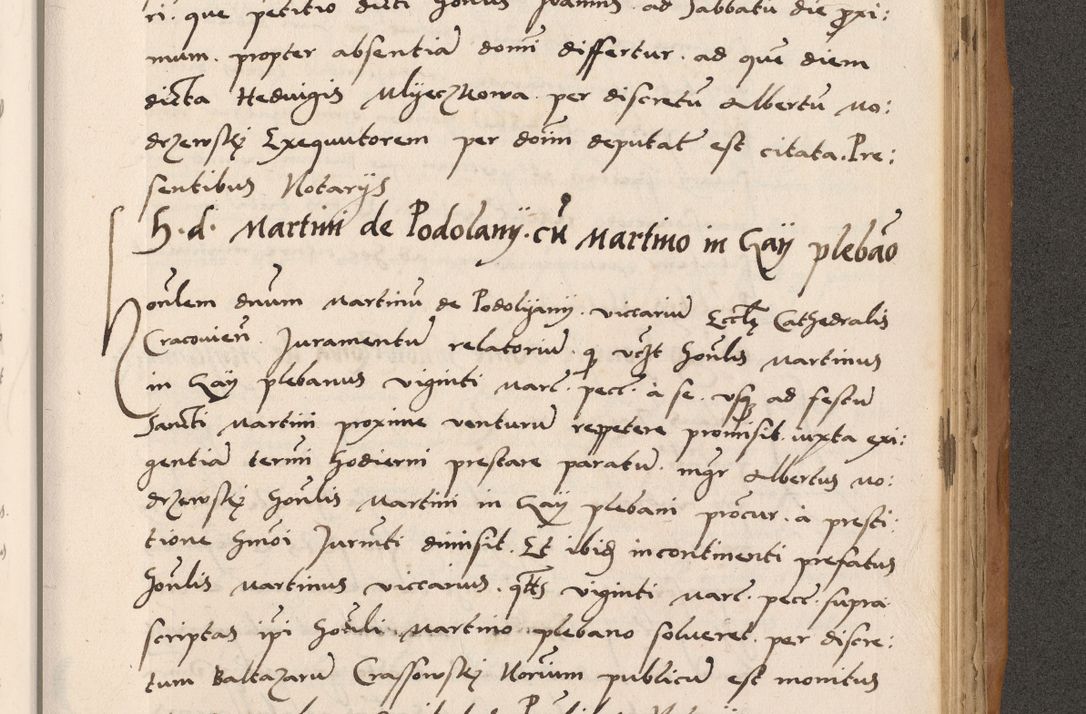 ri. que petitio dicti honlis Joannis ad Sabbatū die proxi:
mum. propter absentiā domi differtur. ad quē diem
dicta Heduigis Mlijeczkowa per discretū Albertū Mo:
drzewskj Exequutorem per doiim deputatū est citata. Pre:
sentibus Notarijs
H. d. Martini de Podolanij. cū Martino in Gaij plebāo
onlem dnum Martinū de Podolijanij viccariū Eccle Cathedralis
Cracovień. Juramentū relatoriū honlis Martinus
in Gaij plebanus viginti marc. pecc. a se. usq ad festū
Sancti Martini proxime venturū reppetere promisit. iuxta exi:
gentiā termi hodierni prestare paratū. mgr Albertus Mo:
drzewskj honlis Martini in Gaij plebani procur. a presti:
tione hmoi Jurmti dimisit. Et ibid incontinenti prefatus
honlis Martinus viccarius. qtts viginti marc. pecc. supra
scriptas ipi honli Martino plebano solveret. per discre:
tum Baltazarū Crassowskj Norium publicū est monitus